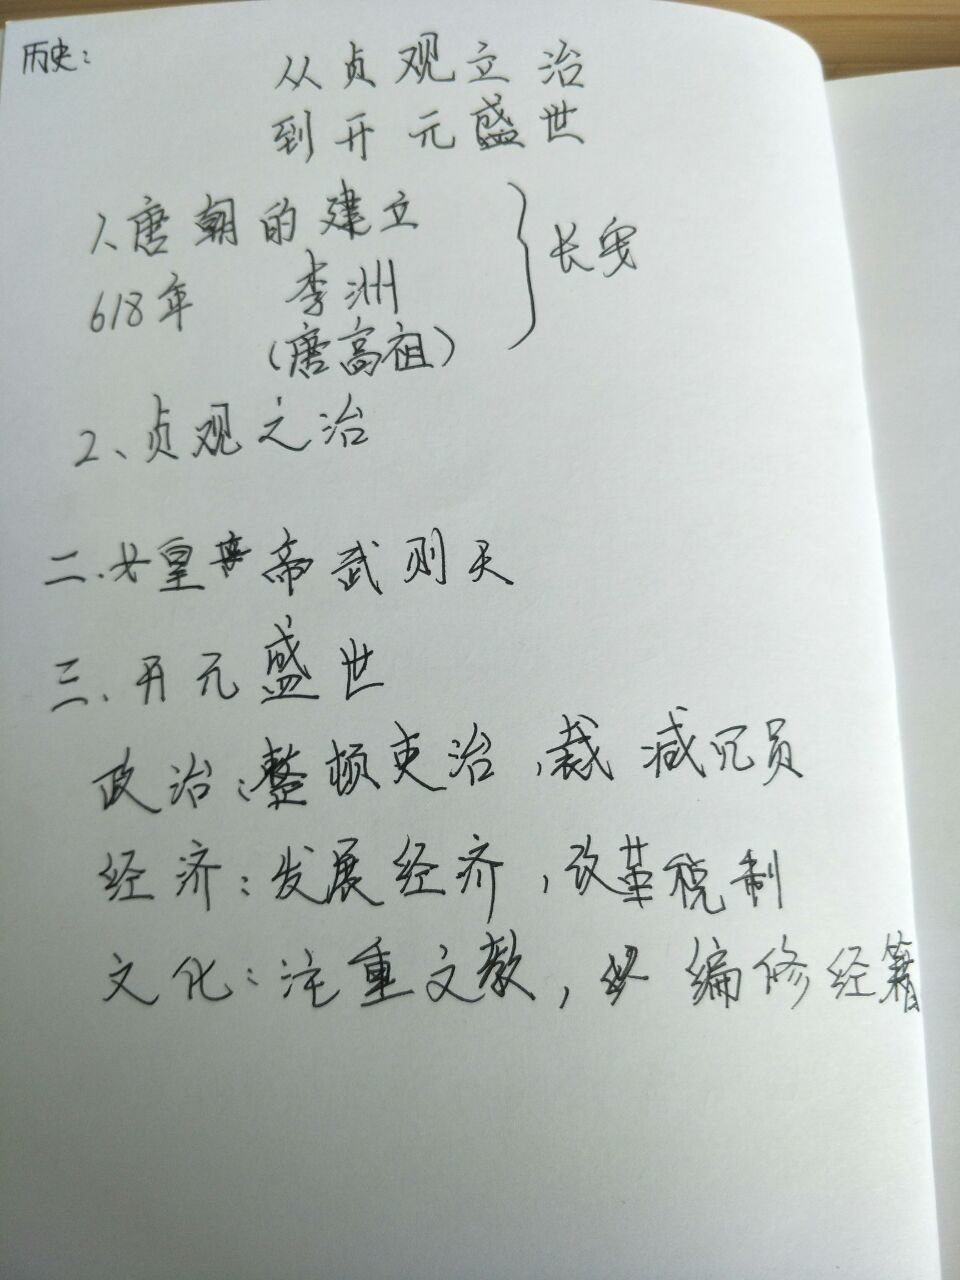 历史:
从贞观立治
到开元盛世
1、唐朝的建立
618年 李洲
(唐高祖)
长安
2、贞观之治
二.女皇帝武则天
三.开元盛世
政治:整顿吏治,裁减冗员
经济:发展经济,改革税制
文化:注重文教,编修经籍